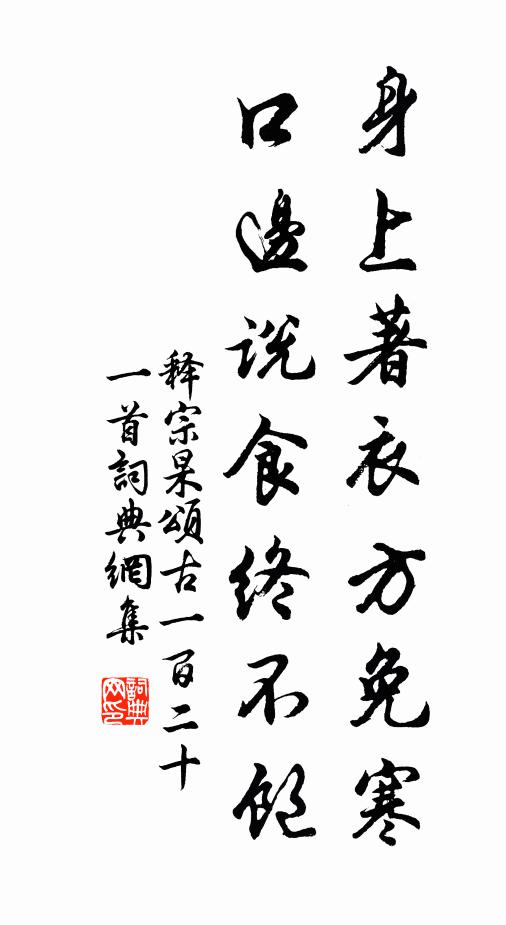 身上著衣方免寒
口邊説食終不飽
释宗杲頌古一百二十
一首詞典網集
詞典
网印